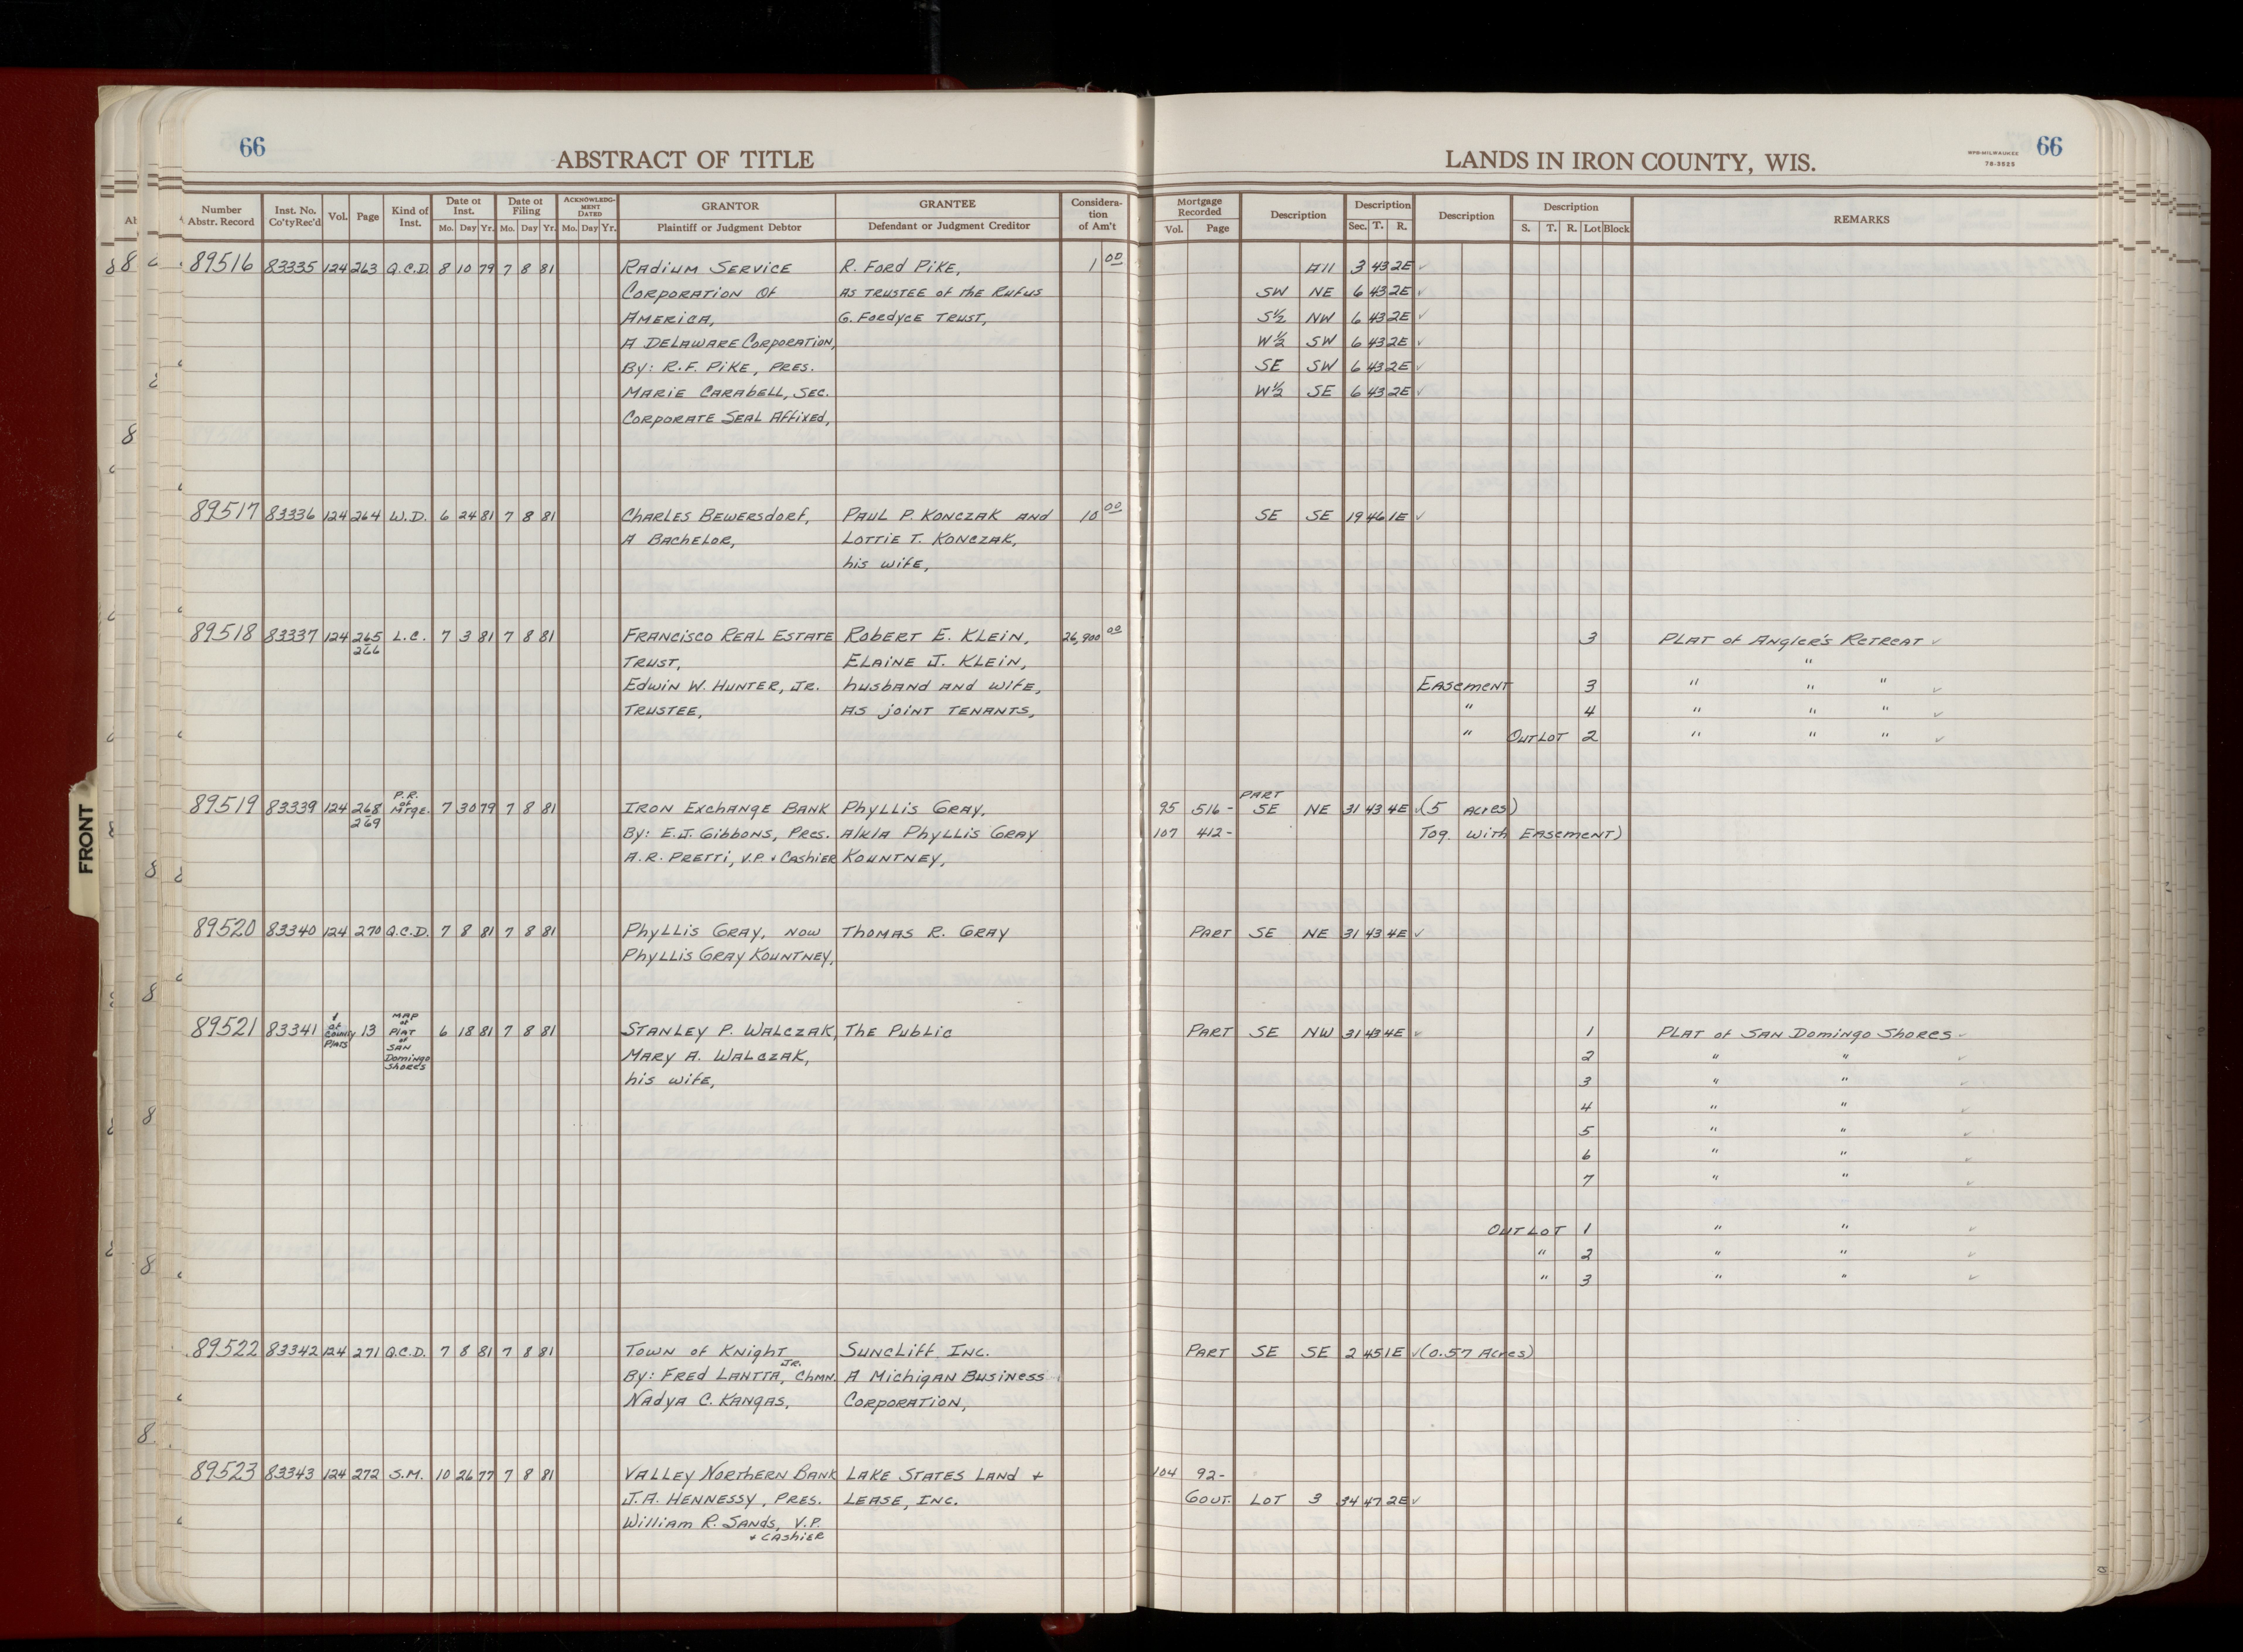 66
ABSTRACT OF TITLE
LANDS IN IRON COUNTY, WIS.
WPB-MILWAUKEE
78-3525
66
Number Abstr. Record | Inst. No. Co'tyRec'd | Vol. | Page | Kind of Inst. | Date of Inst. Mo. Day Yr. | Date of Filing Mo. Day Yr. | ACKNOWLEDGMENT DATED Mo. Day Yr. | GRANTOR Plaintiff or Judgment Debtor | GRANTEE Defendant or Judgment Creditor | Consideration of Am't | Mortgage Recorded Vol. Page | Description | Description Sec. T. R. | Description | Description S. T. R. Lot Block | REMARKS
89516 83335 124 263 Q.C.D. 8 10 79 7 8 81 Radium Service R. Ford Pike, 1 00 All 3 43 2E ✓
Corporation of as trustee of the Rufus SW NE 6 43 2E ✓
America, G. Fordyce Trust, S½ NW 6 43 2E ✓
A Delaware Corporation, W½ SW 6 43 2E ✓
By: R.F. Pike, Pres. SE SW 6 43 2E ✓
Marie Carabell, Sec. W½ SE 6 43 2E ✓
Corporate Seal Affixed,
89517 83336 124 264 W.D. 6 24 81 7 8 81 Charles Bewersdorf, Paul P. Konczak and 10 00 SE SE 19 46 1E ✓
A Bachelor, Lottie T. Konczak,
his wife,
89518 83337 124 265 L.C. 7 3 81 7 8 81 Francisco Real Estate Robert E. Klein, 26,900 00 3 Plat of Angler's Retreat ✓
266 Trust, Elaine J. Klein, "
Edwin W. Hunter, Jr. husband and wife, Easement 3 " " " ✓
Trustee, as joint tenants, " 4 " " " ✓
" Outlot 2 " " " ✓
89519 83339 124 268 P.R. of Mtge. 7 30 79 7 8 81 Iron Exchange Bank Phyllis Gray, 95 516- Part SE NE 31 43 4E ✓ (5 Acres)
269 By: E.J. Gibbons, Pres. A/k/a Phyllis Gray 107 412- Tog. with Easement)
A.R. Pretti, V.P. & Cashier Kountney,
89520 83340 124 270 Q.C.D. 7 8 81 7 8 81 Phyllis Gray, now Thomas R. Gray Part SE NE 31 43 4E ✓
Phyllis Gray Kountney,
89521 83341 1 of County Plats 13 Map of Plat of San Domingo Shores 6 18 81 7 8 81 Stanley P. Walczak, The Public Part SE NW 31 43 4E ✓ 1 Plat of San Domingo Shores ✓
Mary A. Walczak, 2 " " ✓
his wife, 3 " " ✓
4 " " ✓
5 " " ✓
6 " " ✓
7 " " ✓
Outlot 1 " " ✓
" 2 " " ✓
" 3 " " ✓
89522 83342 124 271 Q.C.D. 7 8 81 7 8 81 Town of Knight Suncliff Inc. Part SE SE 2 45 1E ✓ (0.57 Acres)
By: Fred Lantta, Jr. Chmn. A Michigan Business
Nadya C. Kangas, Corporation,
89523 83343 124 272 S.M. 10 26 77 7 8 81 Valley Northern Bank Lake States Land & 104 92-
J.A. Hennessy, Pres. Lease, Inc. Gout. Lot 3 34 47 2E ✓
William R. Sands, V.P.
& Cashier
FRONT